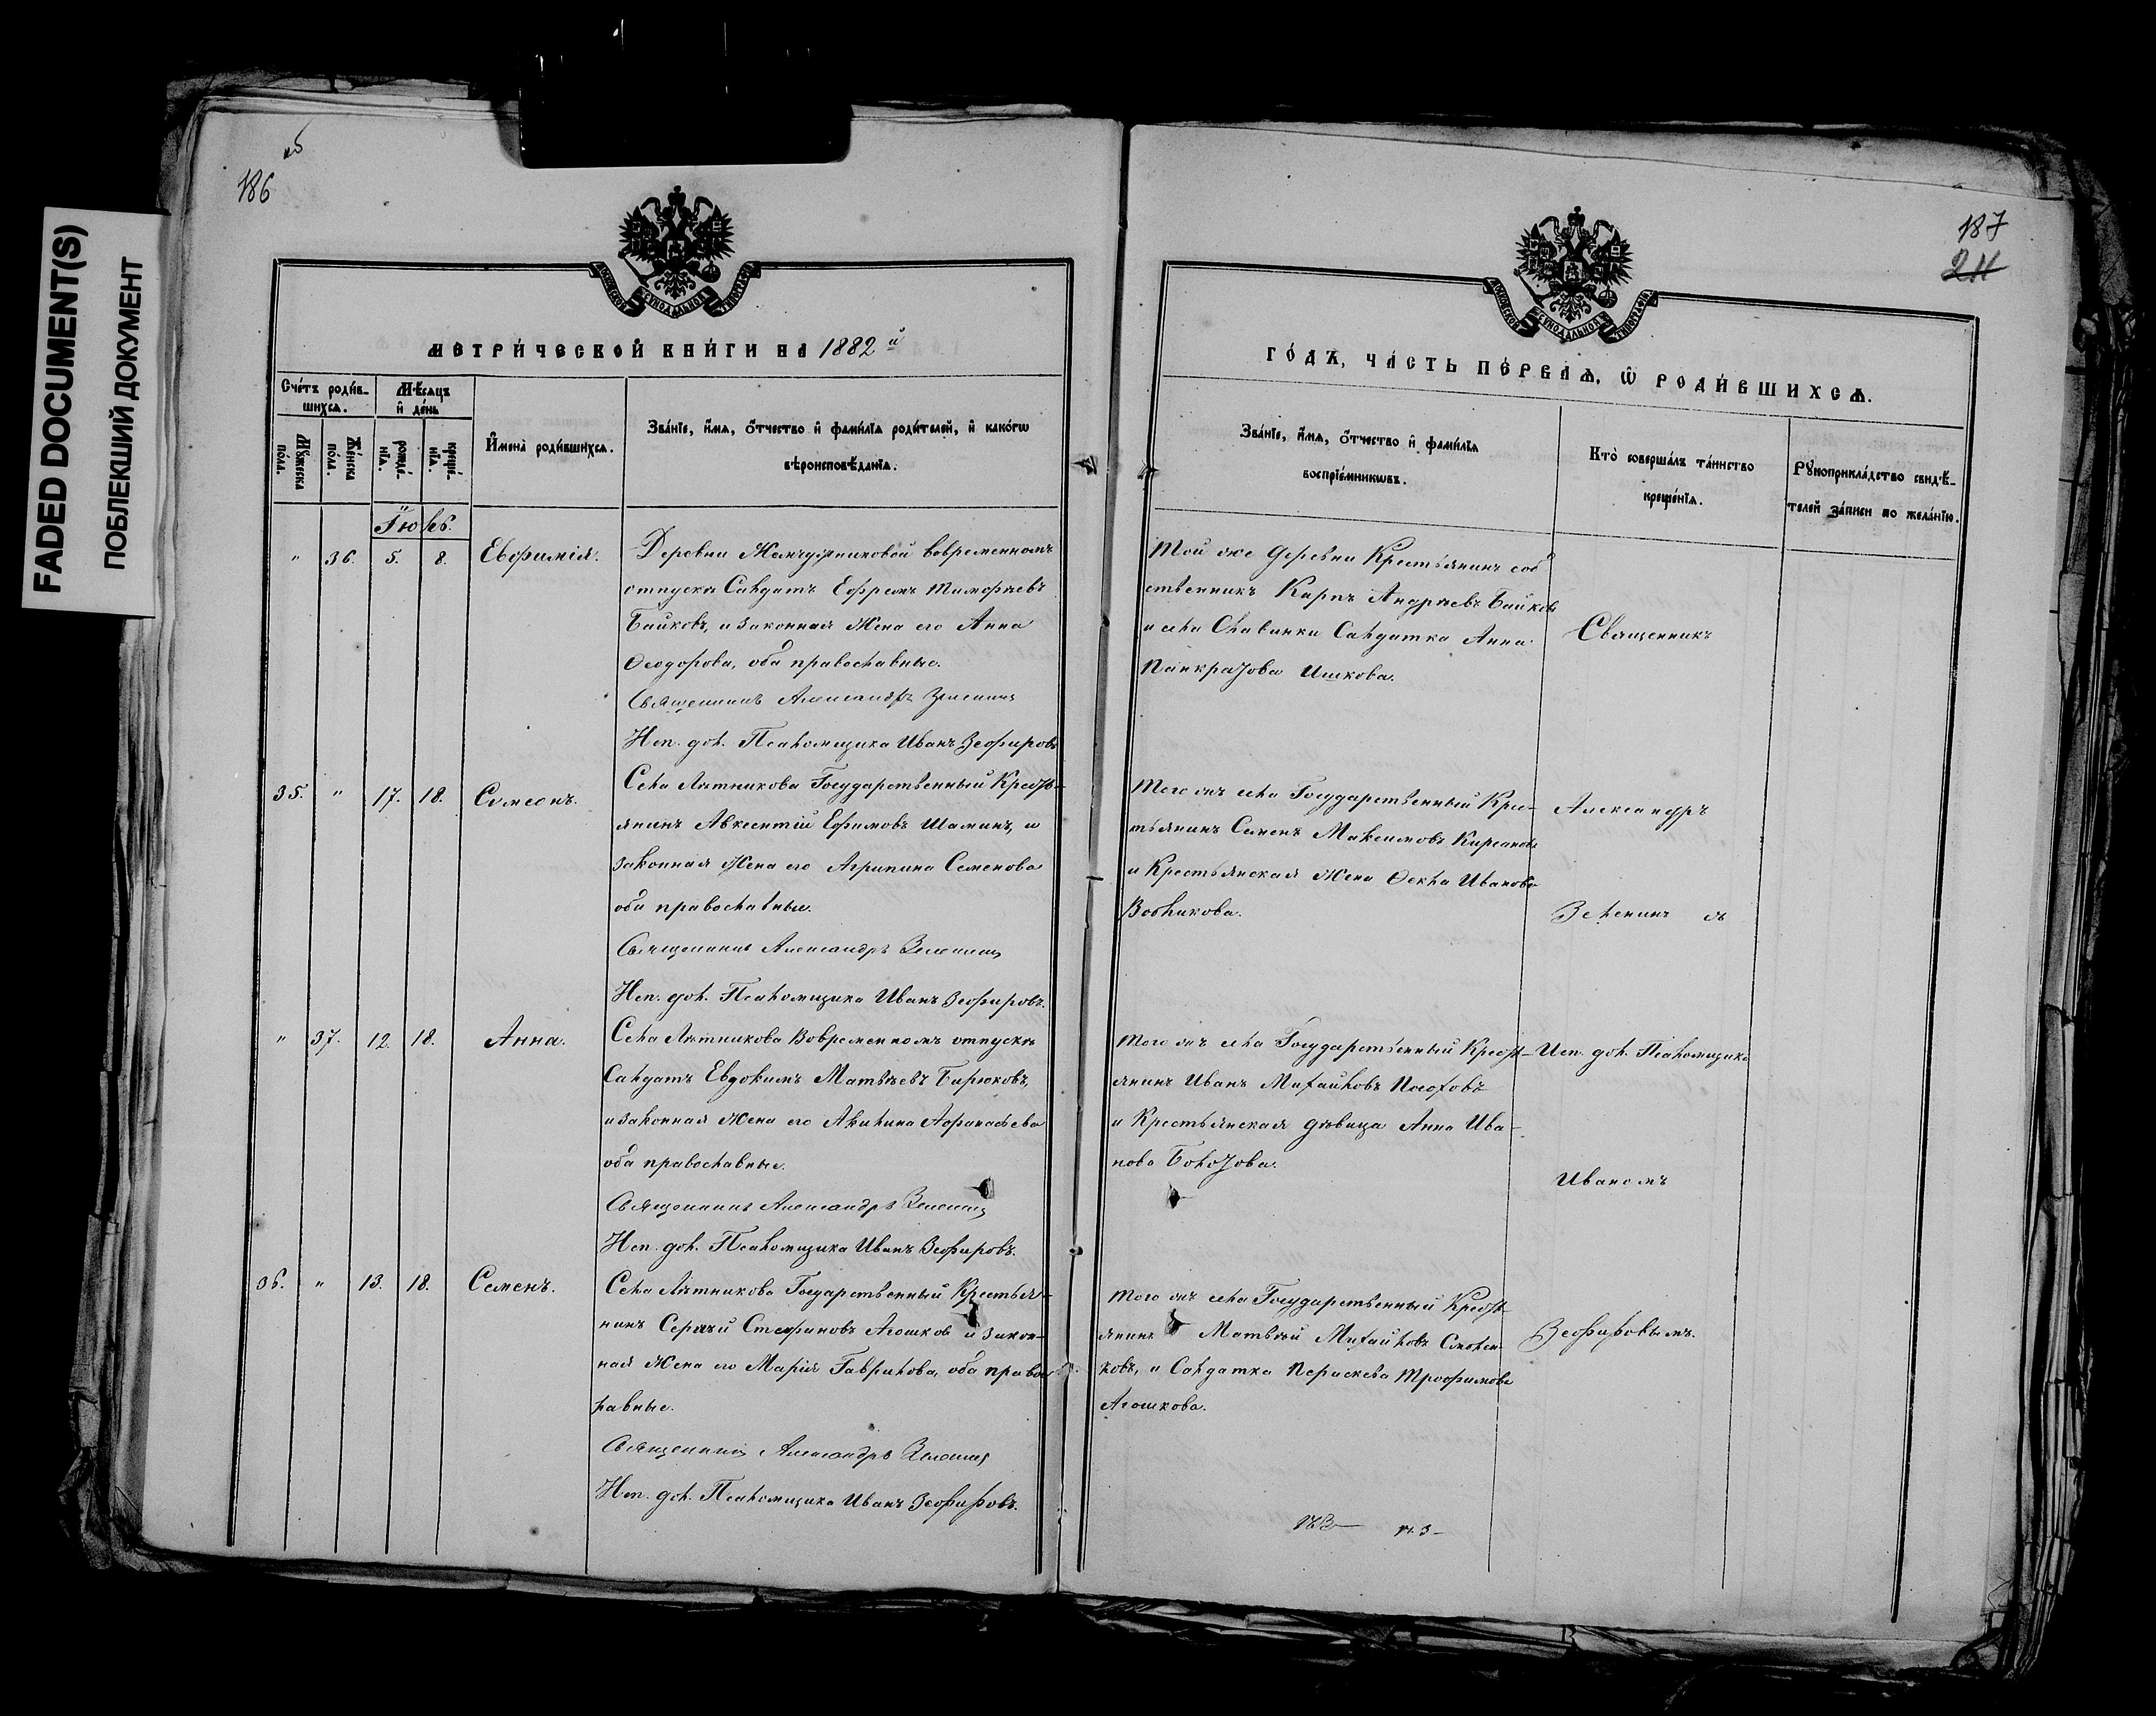 FADED DOCUMENT(S)
ПОБЛЕКШИЙ ДОКУМЕНТ
186
МЕТРИ́ЧЕСКОЙ КНИ́ГИ НА 1882 й
Сче́тъ роди́в-
шихсѧ.
Мѣ́сѧцъ
и҆ де́нь
Мꙋ́жеска
по́ла.
Же́нска
по́ла.
рожде́-
нїѧ.
креще́-
нїѧ.
И҆мена̀ роди́вшихсѧ.
Зва́нїе, и҆́мѧ, о҆́тчество и҆ фами́лїѧ роди́телей, и҆ како́гѡ
вѣроисповѣ́данїѧ.
Іюль.
" 36. 5. 8. Евфимія.
Деревни Жемчужниковой вовременномъ
отпускѣ Салдатъ Ефремъ Тимофѣевъ
Байковъ, и законная жена его Анна
Ѳеодорова, оба православные.
Священникъ Александръ Зеленинъ
Исп. дол. Псаломщика Иванъ Зефировъ
35. " 17. 18. Симеонъ.
Села Лѣтникова Государственный Кресть-
янинъ Авксентій Ефимовъ Шаминъ, и
законная жена его Агрипина Семенова
оба православные.
Священникъ Александръ Зеленинъ
Исп. дол. Псаломщика Иванъ Зефировъ.
" 37. 12. 18. Анна.
Села Лѣтникова Вовременномъ отпускѣ
Салдатъ Евдокимъ Матвѣевъ Бирюковъ,
и законная жена его Акилина Афанасьева
оба православные.
Священникъ Александръ Зеленинъ
Исп. дол. Псаломщика Иванъ Зефировъ.
36. " 13. 18. Семенъ.
Села Лѣтникова Государственный Крестья-
нинъ Сергѣй Стефановъ Агошков и закон-
ная жена его Марія Гаврилова, оба правос-
лавные.
Священникъ Александръ Зеленинъ
Исп. дол. Псаломщика Иванъ Зефировъ.
187
211
ГО́ДЪ, ЧА́СТЬ ПЕ́РВАѦ, Ѽ РОДИ́ВШИХСѦ.
Зва́нїе, и҆́мѧ, о҆́тчество и҆ фами́лїѧ
воспрїе́мникѡвъ.
Кто̀ соверша́лъ та́инство
креще́нїѧ.
Рꙋкоприкла́дство свидѣ́-
телей за́писи по жела́нїю.
Той же деревни Крестьянинъ соб
ственникъ Карпъ Андрѣевъ Байковъ
и села Славинки Салдатка Анна
Панкратова Ишкова.
Священникъ
Того жъ села Государственный Крес-
тьянинъ Семенъ Максимовъ Кирсановъ
и Крестьянская жена Ѳекла Иванова
Вобликова.
Александръ
Зеленинъ съ
Того жъ села Государственный Кресть-
янинъ Иванъ Михайловъ Лосотовъ
и Крестьянская дѣвица Анна Ива-
нова Болотова.
Исп. дол. Псаломщика
Иваномъ
Того жъ села Государственный Кресть-
янинъ Матвѣй Михайловъ
и Салдатка Параскева Трофимова
Агошкова.
Зефировымъ.